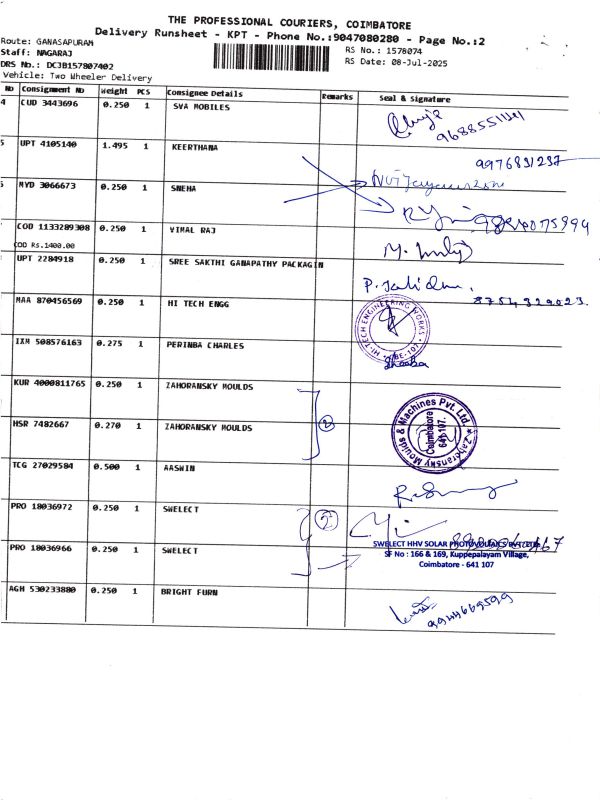 THE PROFESSIONAL COURIERS, COIMBATORE
Delivery Runsheet - KPT - Phone No.:9047080280 - Page No.:2
Route: GANASAPURAM
Staff: NAGARAJ
DRS No.: DCJB157807402
Vehicle: Two Wheeler Delivery
RS No.: 1578074
RS Date: 08-Jul-2025
No Consignment No Weight PCS Consignee Details Remarks Seal & Signature
4 CUD 3443696 0.250 1 SVA MOBILES
9688551141
5 UPT 4105140 1.495 1 KEERTHANA
9976831237
6 MYD 3066673 0.250 1 SNEHA
COD 1133289308 0.250 1 VIMAL RAJ
COD Rs.1400.00
UPT 2284918 0.250 1 SREE SAKTHI GANAPATHY PACKAGIN
8754329023.
MAA 870456569 0.250 1 HI TECH ENGG
HI-TECH ENGINEERING WORKS
CBE-107
IXM 508576163 0.275 1 PERINBA CHARLES
KUR 4000811765 0.250 1 ZAHORANSKY MOULDS
2
Zahoransky Moulds & Machines Pvt. Ltd.
Coimbatore
641 107.
HSR 7482667 0.270 1 ZAHORANSKY MOULDS
TCG 27029584 0.500 1 AASWIN
PRO 18036972 0.250 1 SWELECT
PRO 18036966 0.250 1 SWELECT
SWELECT HHV SOLAR
SF No : 166 & 169, Kuppepalayam Village,
Coimbatore - 641 107
AGH 530233880 0.250 1 BRIGHT FURN
9944669599